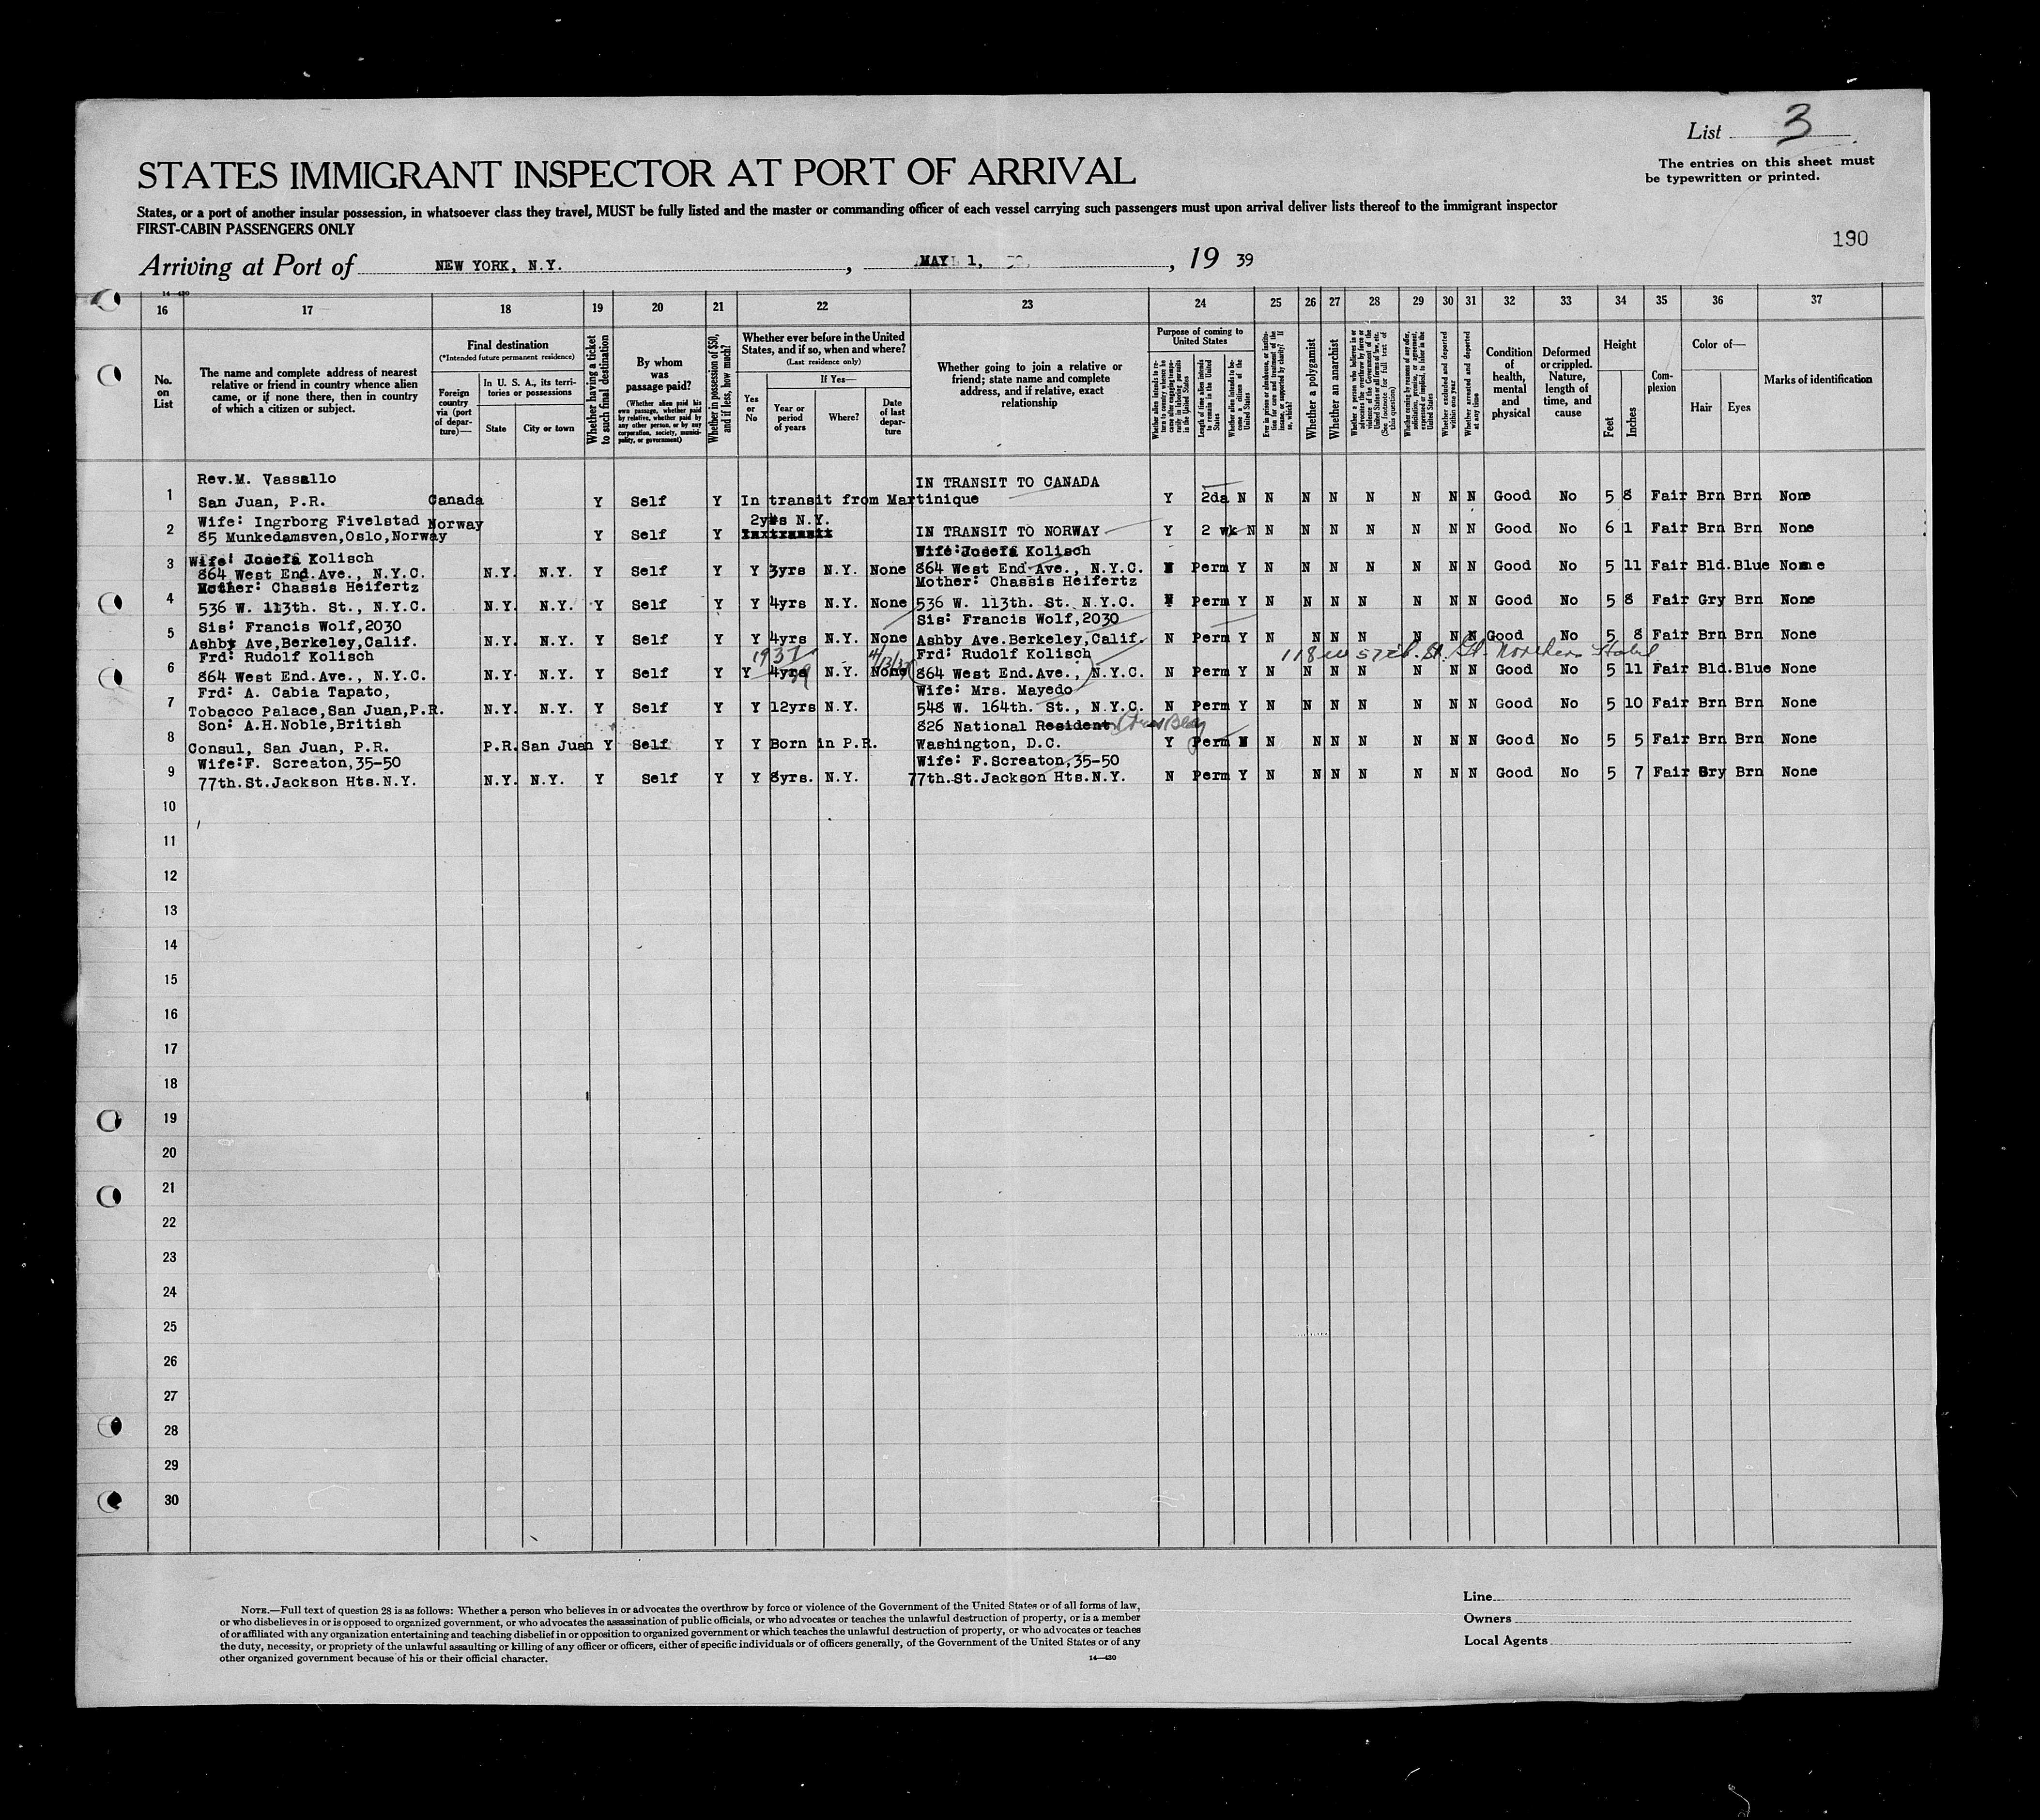 List 3
The entries on this sheet must
be typewritten or printed.
STATES IMMIGRANT INSPECTOR AT PORT OF ARRIVAL
States, or a port of another insular possession, in whatsoever class they travel, MUST be fully listed and the master or commanding officer of each vessel carrying such passengers must upon arrival deliver lists thereof to the immigrant inspector
FIRST-CABIN PASSENGERS ONLY
190
Arriving at Port of NEW YORK, N.Y. , MAY 1, , 19 39
14-430
16 17 18 19 20 21 22 23 24 25 26 27 28 29 30 31 32 33 34 35 36 37
No. on List
The name and complete address of nearest relative or friend in country whence alien came, or if none there, then in country of which a citizen or subject.
Final destination
(*Intended future permanent residence)
Foreign country via (port of departure)—
In U. S. A., its territories or possessions
State
City or town
Whether having a ticket to such final destination
By whom was passage paid?
(Whether alien paid his own passage, whether paid by relative, whether paid by any other person, or by any corporation, society, municipality, or government)
Whether in possession of $50, and if less, how much?
Whether ever before in the United States, and if so, when and where?
(Last residence only)
Yes or No
If Yes—
Year or period of years
Where?
Date of last departure
Whether going to join a relative or friend; state name and complete address, and if relative, exact relationship
Purpose of coming to United States
Whether alien intends to return to country whence he came after engaging temporarily in laboring pursuits in the United States
Length of time alien intends to remain in the United States
Whether alien intends to become a citizen of the United States
Ever in prison or almshouse, or institution for care and treatment of the insane, or supported by charity? If so, which?
Whether a polygamist
Whether an anarchist
Whether a person who believes in or advocates the overthrow by force or violence of the Government of the United States or all forms of law, etc. (See footnote for full text of this question)
Whether coming by reasons of any offer, solicitation, promise, or agreement, expressed or implied, to labor in the United States
Whether excluded and deported within one year
Whether arrested and deported at any time
Condition of health, mental and physical
Deformed or crippled. Nature, length of time, and cause
Height
Feet
Inches
Complexion
Color of—
Hair
Eyes
Marks of identification
Rev.M. Vassallo IN TRANSIT TO CANADA
1 San Juan, P.R. Canada Y Self Y In transit from Martinique Y 2da N N N N N N N N Good No 5 8 Fair Brn Brn None
Wife: Ingrborg Fivelstad Norway 2yrs N.Y.
2 85 Munkedamsven,Oslo,Norway Y Self Y IN TRANSIT TO NORWAY Y 2 wk N N N N N N N N Good No 6 1 Fair Brn Brn None
Wife: Josefa Kolisch Wife:Josefa Kolisch
3 864 West End.Ave., N.Y.C. N.Y. N.Y. Y Self Y Y 3yrs N.Y. None 864 West End Ave., N.Y.C. N Perm Y N N N N N N N Good No 5 11 Fair Bld.Blue None
Mother: Chassis Heifertz Mother: Chassis Heifertz
4 536 W. 113th. St., N.Y.C. N.Y. N.Y. Y Self Y Y 4yrs N.Y. None 536 W. 113th. St. N.Y.C. N Perm Y N N N N N N N Good No 5 8 Fair Gry Brn None
Sis: Francis Wolf,2030 Sis: Francis Wolf,2030
5 Ashby Ave,Berkeley,Calif. N.Y. N.Y. Y Self Y Y 4yrs N.Y. None Ashby Ave.Berkeley,Calif. N Perm Y N N N N N N N Good No 5 8 Fair Brn Brn None
Frd: Rudolf Kolisch 1937 Frd: Rudolf Kolisch 118 W 57th. St. Gt. Northern Hotel
6 864 West End.Ave., N.Y.C. N.Y. N.Y. Y Self Y Y 4yrs N.Y. None 864 West End.Ave., N.Y.C. N Perm Y N N N N N N N Good No 5 11 Fair Bld.Blue None
Frd: A. Cabia Tapato, Wife: Mrs. Mayedo
7 Tobacco Palace,San Juan,P.R. N.Y. N.Y. Y Self Y Y 12yrs N.Y. 548 W. 164th. St., N.Y.C. N Perm Y N N N N N N N Good No 5 10 Fair Brn Brn None
Son: A.H.Noble,British 826 National Resident
8 Consul, San Juan, P.R. P.R.San Juan Y Self Y Y Born in P.R. Washington, D.C. Y Perm N N N N N N N N Good No 5 5 Fair Brn Brn None
Wife:F. Screaton,35-50 Wife: F.Screaton,35-50
9 77th.St.Jackson Hts.N.Y. N.Y. N.Y. Y Self Y Y 8yrs. N.Y. 77th.St.Jackson Hts.N.Y. N Perm Y N N N N N N N Good No 5 7 Fair Gry Brn None
10
11
12
13
14
15
16
17
18
19
20
21
22
23
24
25
26
27
28
29
30
NOTE.—Full text of question 28 is as follows: Whether a person who believes in or advocates the overthrow by force or violence of the Government of the United States or of all forms of law,
or who disbelieves in or is opposed to organized government, or who advocates the assassination of public officials, or who advocates or teaches the unlawful destruction of property, or is a member
of or affiliated with any organization entertaining and teaching disbelief in or opposition to organized government or which teaches the unlawful destruction of property, or who advocates or teaches
the duty, necessity, or propriety of the unlawful assaulting or killing of any officer or officers, either of specific individuals or of officers generally, of the Government of the United States or of any
other organized government because of his or their official character.
14—430
Line
Owners
Local Agents